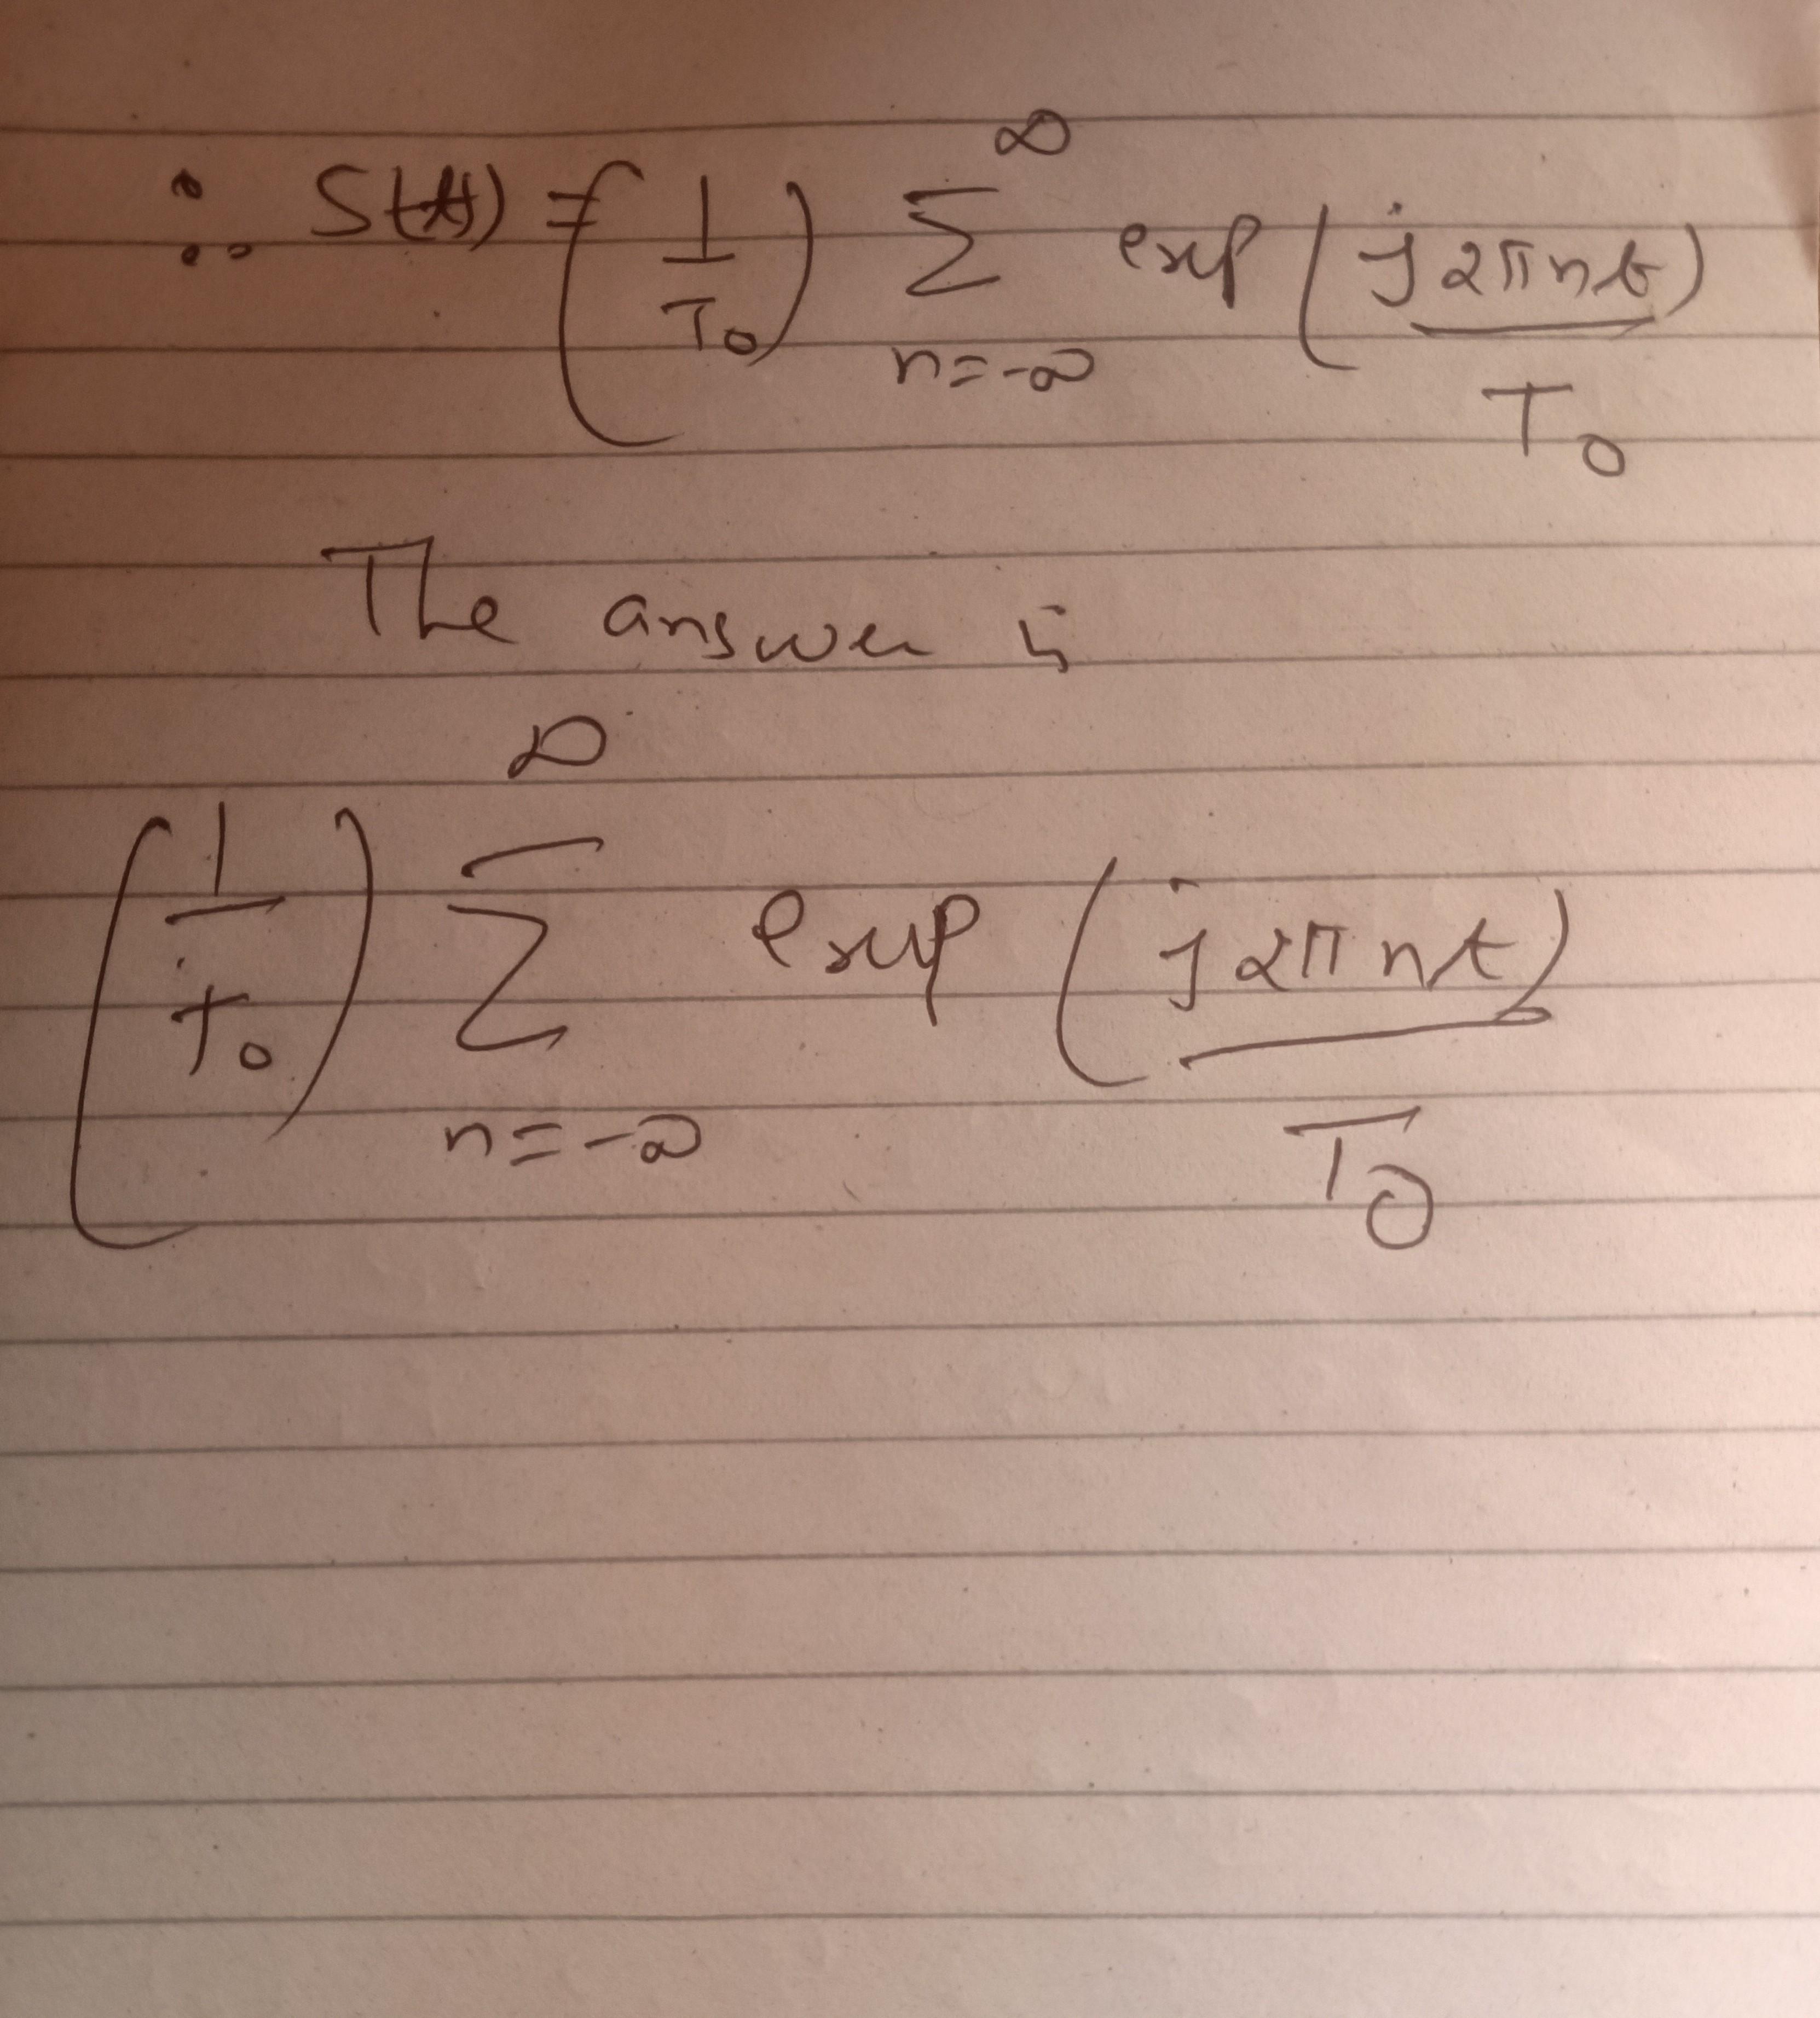 ∴ S(t) = (1/T₀) ∞∑n=-∞ exp (j2πnt)/T₀
The answer is
(1/T₀) ∞∑n=-∞ exp (j2πnt)/T₀